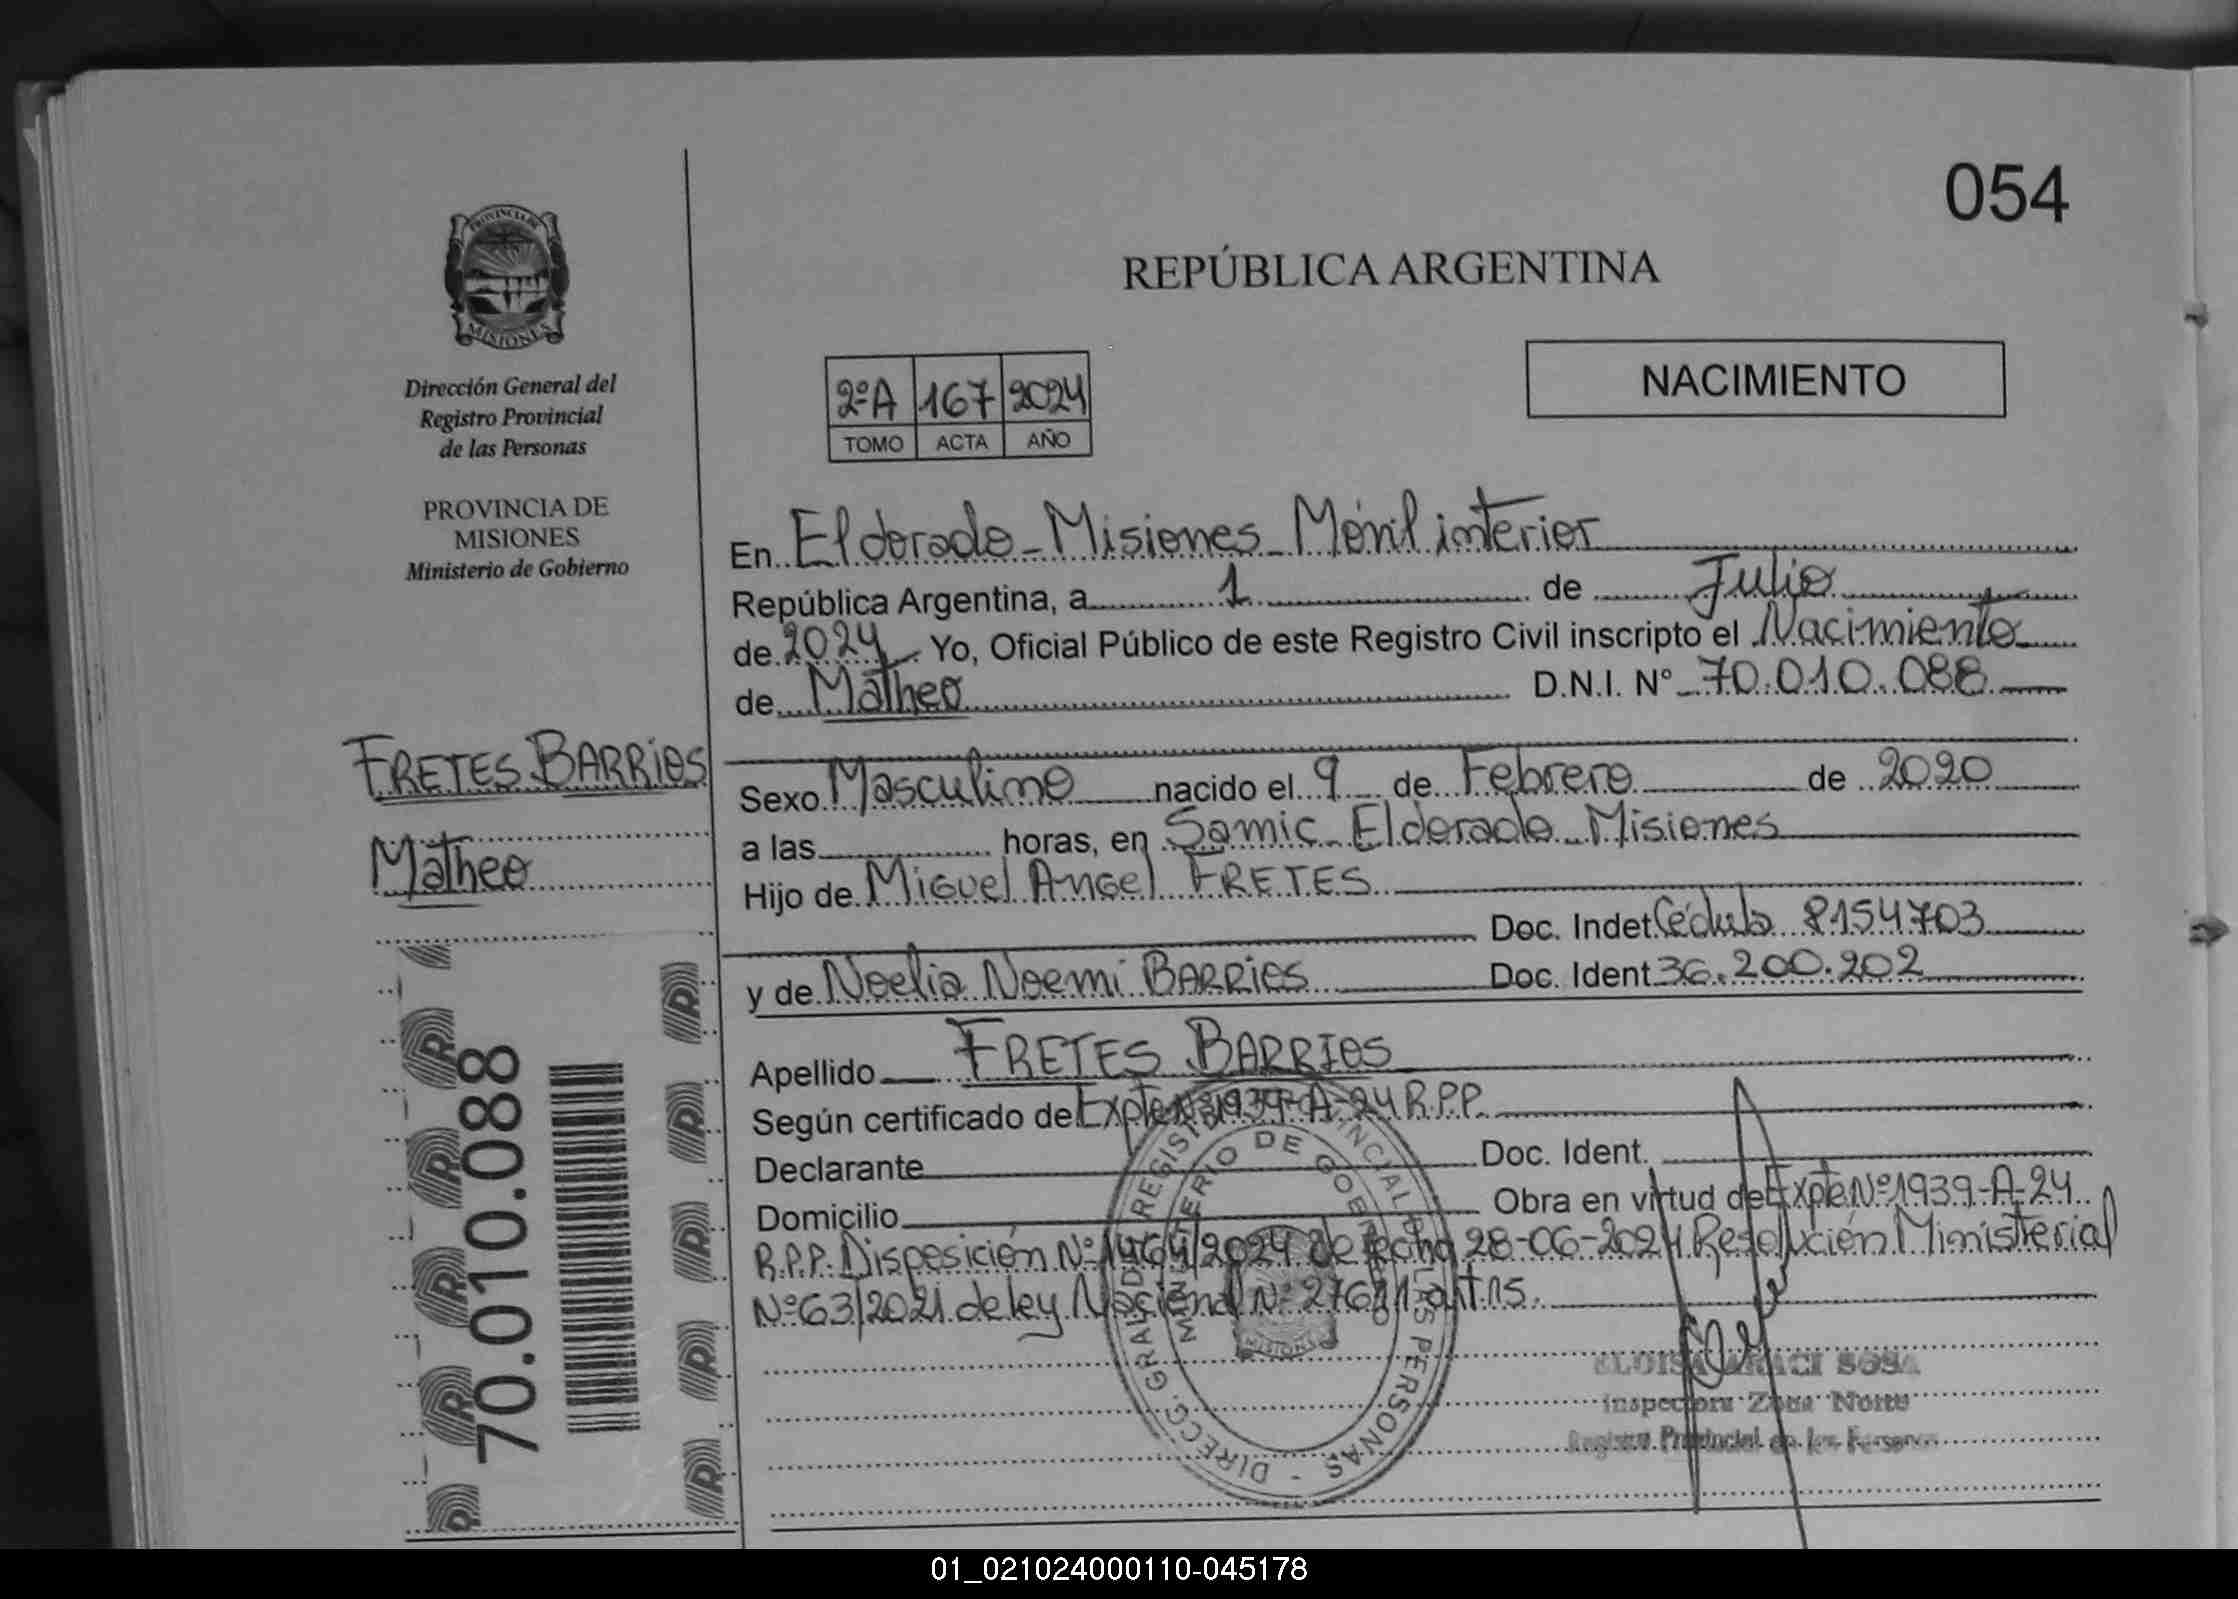 054
PROVINCIA DE
MISIONES
Dirección General del
Registro Provincial
de las Personas
PROVINCIA DE
MISIONES
Ministerio de Gobierno
FRETES BARRIOS
Matheo
70.010.088
REPÚBLICA ARGENTINA
NACIMIENTO
2ºA 167 2024
TOMO ACTA AÑO
En Eldorado - Misiones - Móvil interior
República Argentina, a 1 de Julio
de 2024. Yo, Oficial Público de este Registro Civil inscripto el Nacimiento
de Matheo D.N.I. N° 70.010.088
Sexo Masculino nacido el 9 de Febrero de 2020
a las horas, en Samic - Eldorado - Misiones
Hijo de Miguel Angel FRETES
Doc. Indet Cédula 8154703
y de Noelia Noemi BARRIOS Doc. Ident 36.200.202
Apellido FRETES BARRIOS
Según certificado de Expte Nº 1939-A-24 R.P.P.
Declarante Doc. Ident.
Domicilio Obra en virtud de Expte Nº 1939-A-24
R.P.P. Disposición Nº 1464/2024 de fecha 28-06-2024 Resolución Ministerial
Nº 63/2021 de ley Nacional Nº 27611 art 15.
DIRECC. GRAL. DE REGISTRO PROVINCIAL DE LAS PERSONAS -
MINISTERIO DE GOBIERNO
MISIONES
ELOISA ARACI SOSA
Inspectora Zona Norte
Registro Provincial de las Personas
01_021024000110-045178